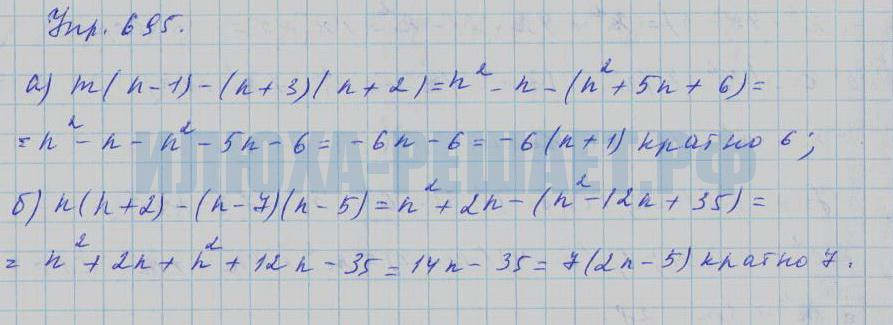 Упр. 695.
а) m(n-1)-(n+3)(n+2)=n²-n-(n²+5n+6)=
=n²-n-n²-5n-6=-6n-6=-6(n+1) кратно 6;
ИЛЮХА-РЕШАЕТ.РФ
б) n(n+2)-(n-7)(n-5)=n²+2n-(n²-12n+35)=
= n²+2n+n²+12n-35=14n-35=7(2n-5) кратно 7.